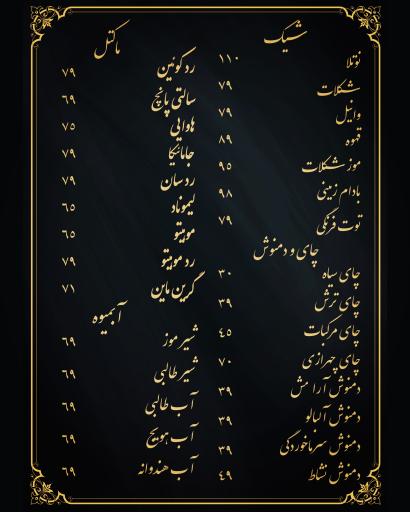 شیک
نوتلا ۱۱۰
شکلات ۷۹
وانیل ۷۹
قهوه ۸۹
موز شکلات ۹۵
بادام زمینی ۹۸
توت فرنگی ۷۹
چای و دمنوش
چای سیاه ۳۰
چای ترش ۳۹
چای مرکبات ۴۵
چای چهرازی ۷۰
دمنوش آرامش ۳۹
دمنوش آلبالو ۳۹
دمنوش سرماخوردگی ۳۹
دمنوش نشاط ۴۹
ماکتل
رد کوئین ۷۹
سالتی پانچ ۶۹
هاوایی ۷۵
جامائیکا ۷۹
رد سان ۷۹
لیموناد ۶۵
موهیتو ۶۵
رد موهیتو ۷۹
گرین ماین ۷۱
آبمیوه
شیر موز ۶۹
شیر طالبی ۶۹
آب طالبی ۶۹
آب هویج ۶۹
آب هندوانه ۶۹